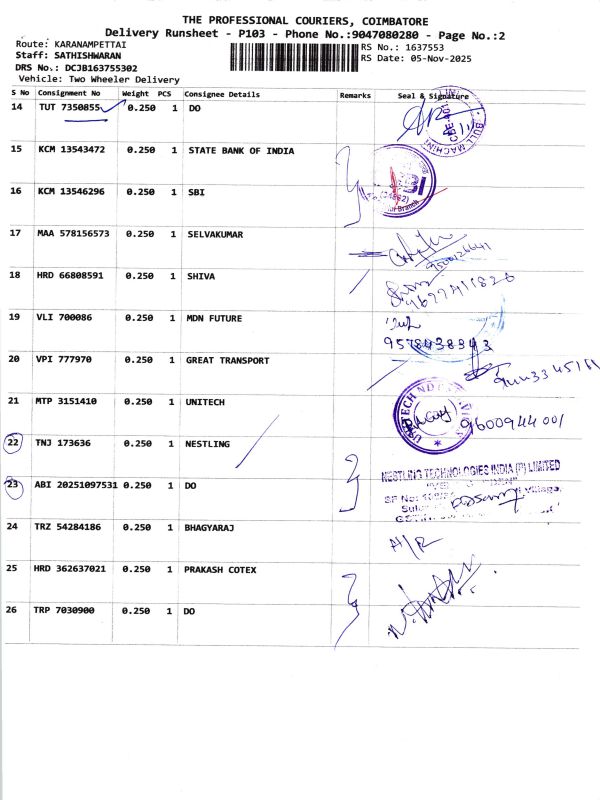 THE PROFESSIONAL COURIERS, COIMBATORE
Delivery Runsheet - P103 - Phone No.:9047080280 - Page No.:2
Route: KARANAMPETTAI
RS No.: 1637553
Staff: SATHISHWARAN
RS Date: 05-Nov-2025
DRS No.: DCJB163755302
Vehicle: Two Wheeler Delivery
S No Consignment No Weight PCS Consignee Details Remarks Seal & Signature
14 TUT 7350855 0.250 1 DO
15 KCM 13543472 0.250 1 STATE BANK OF INDIA
16 KCM 13546296 0.250 1 SBI
17 MAA 578156573 0.250 1 SELVAKUMAR
18 HRD 66808591 0.250 1 SHIVA
19 VLI 700086 0.250 1 MDN FUTURE
9578438343
20 VPI 777970 0.250 1 GREAT TRANSPORT
21 MTP 3151410 0.250 1 UNITECH
9600944001
22 TNJ 173636 0.250 1 NESTLING
NESTLING TECHNOLOGIES INDIA (P) LIMITED
23 ABI 20251097531 0.250 1 DO
24 TRZ 54284186 0.250 1 BHAGYARAJ
A/R
25 HRD 362637021 0.250 1 PRAKASH COTEX
26 TRP 7030900 0.250 1 DO